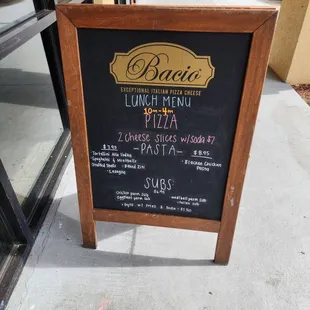 Bacio
EXCEPTIONAL ITALIAN PIZZA CHEESE
LUNCH MENU
10am-4pm
PIZZA
2 Cheese slices w/soda $7
-PASTA-
Tortellini Alla Vodka
Spaghetti & Meatballs
Stuffed Shells
Baked Ziti
Lasagna
$8.95
Chicken
Pasta
SUBS
Chicken Parm Sub
Eggplant Parm Sub
Meatball Parm Sub